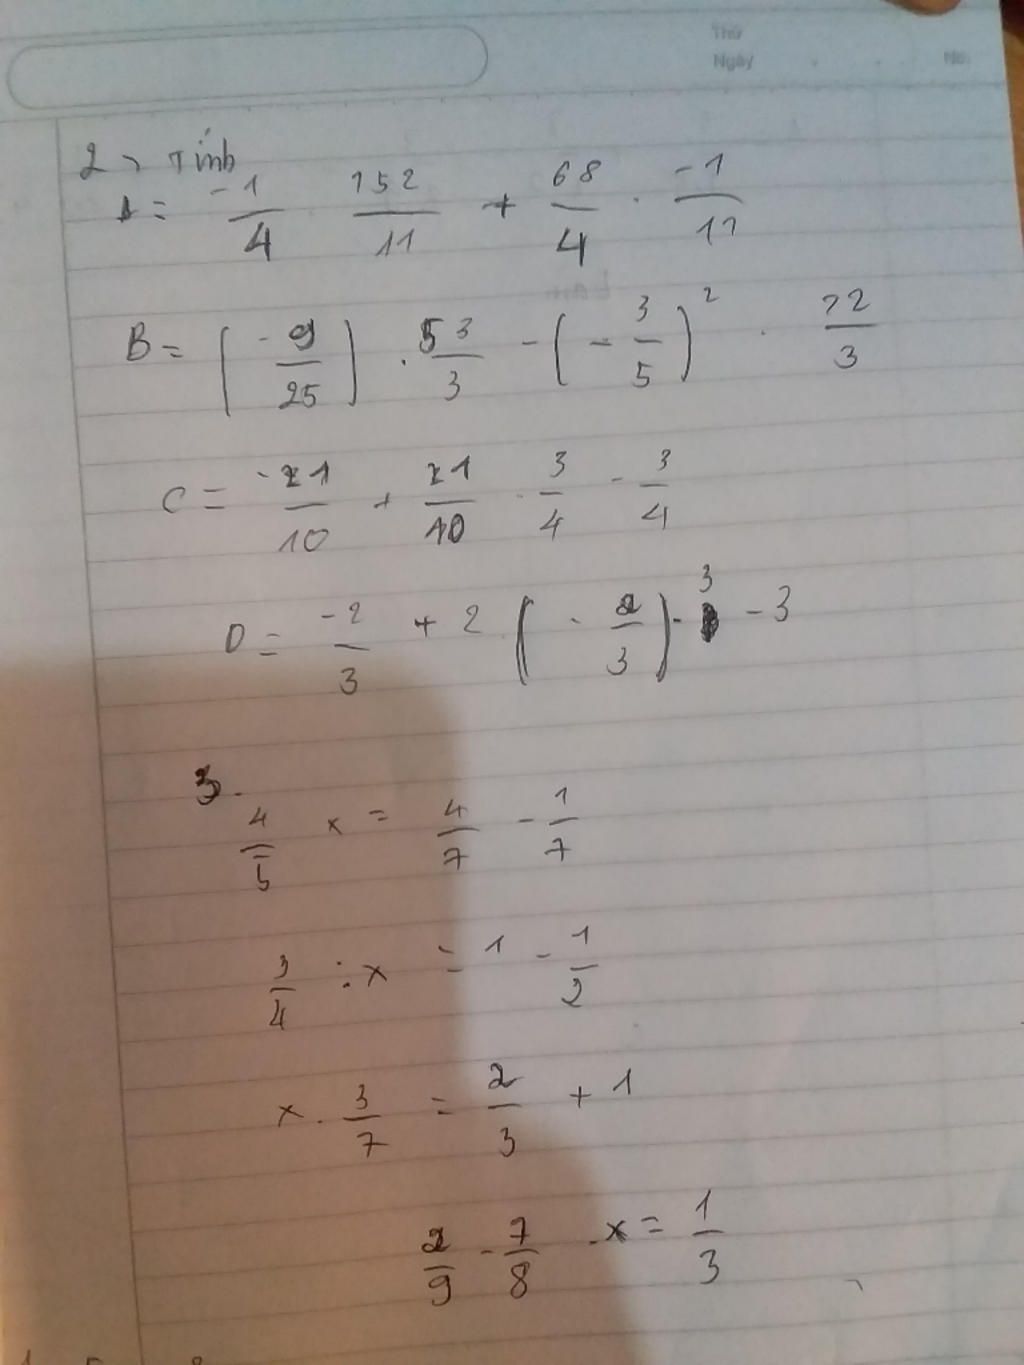 Thứ
Ngày . . No.
2> Tính
A = -1/4 . 152/11 + 68/4 . -1/11
B = (-9/25) . 53/3 - (-3/5)² . 22/3
C = -21/10 + 21/10 . 3/4 - 3/4
D = -2/3 + 2 . (-2/3) . 3 - 3
3.
4/5 x = 4/7 - 1/7
3/4 : x = 1 - 1/2
x . 3/7 = 2/3 + 1
2/9 - 7/8 . x = 1/3